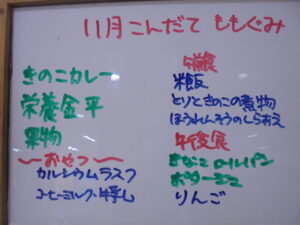 11月こんだて ももぐみ
きのこカレー
栄養金平
果物
〜おやつ〜
カルシウムラスク
コーヒーミルク・牛乳
米飯
とりときのこの煮物
ほうれんそうのしらあえ
午後食
きなこロールパン
ポタージュ
りんご